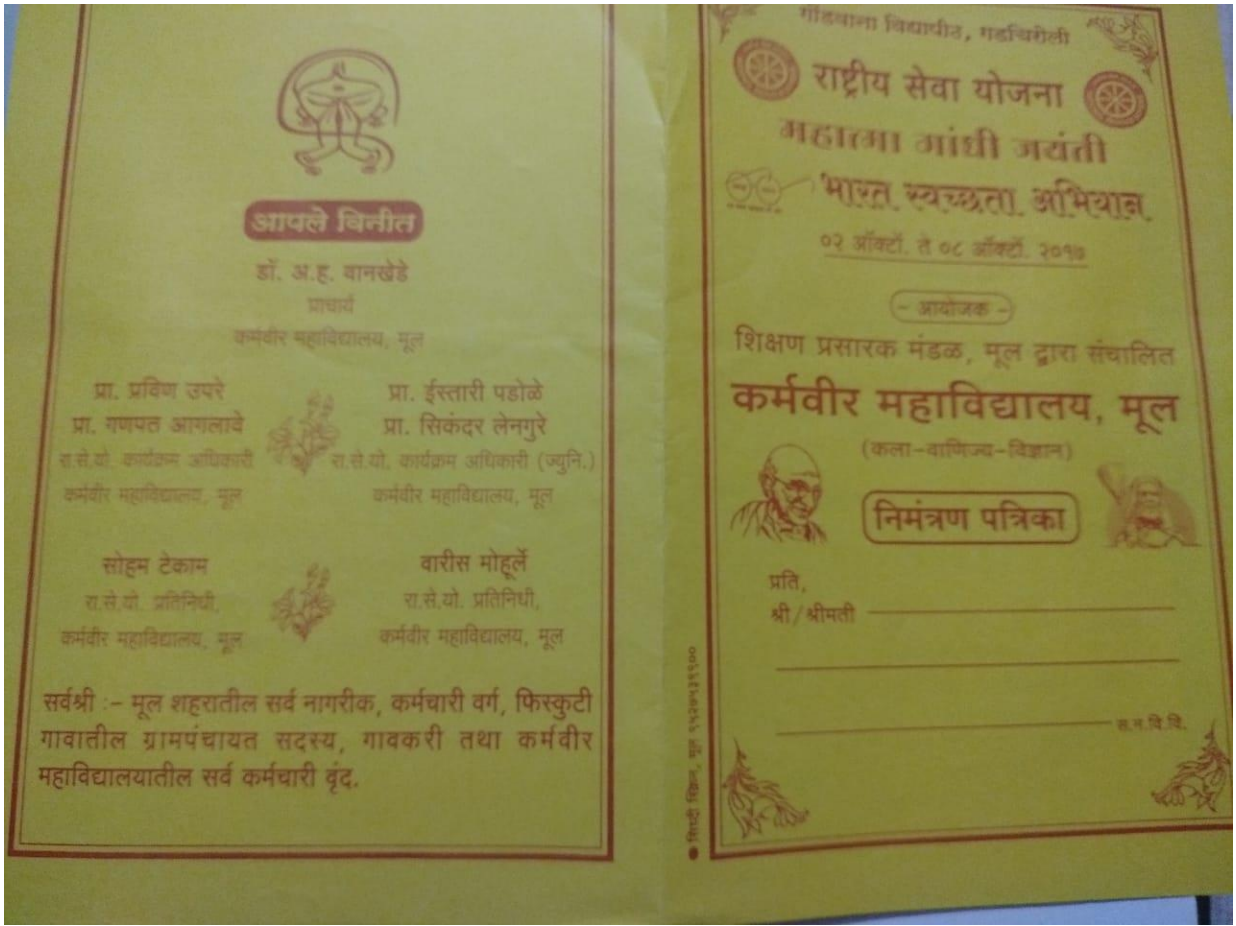 आपले विनीत
डॉ. अ.ह. वानखेडे
प्राचार्य
कर्मवीर महाविद्यालय, मूल
प्रा. प्रविण उपरे
प्रा. गणपत आगलावे
रा.से.यो. कार्यक्रम अधिकारी
कर्मवीर महाविद्यालय, मूल
प्रा. ईस्तारी पडोळे
प्रा. सिकंदर लेनगुरे
रा.से.यो. कार्यक्रम अधिकारी (ज्युनि.)
कर्मवीर महाविद्यालय, मूल
सोहम टेकाम
रा.से.यो. प्रतिनिधी,
कर्मवीर महाविद्यालय, मूल
वारीस मोहूर्ले
रा.से.यो. प्रतिनिधी,
कर्मवीर महाविद्यालय, मूल
सर्वश्री :– मूल शहरातील सर्व नागरीक, कर्मचारी वर्ग, फिस्कुटी
गावातील ग्रामपंचायत सदस्य, गावकरी तथा कर्मवीर
महाविद्यालयातील सर्व कर्मचारी वृंद.
गोंडवाना विद्यापीठ, गडचिरोली
राष्ट्रीय सेवा योजना
महात्मा गांधी जयंती
भारत स्वच्छता अभियान
०२ ऑक्टों. ते ०८ ऑक्टों. २०१७
- आयोजक -
शिक्षण प्रसारक मंडळ, मूल द्वारा संचालित
कर्मवीर महाविद्यालय, मूल
(कला-वाणिज्य-विज्ञान)
निमंत्रण पत्रिका
प्रति,
श्री/श्रीमती
स.न.वि.वि.